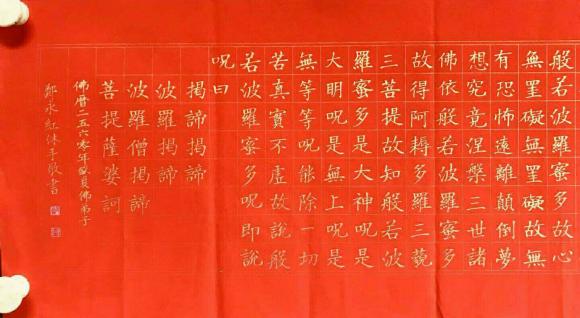 般若波羅蜜多故心
無罣礙無罣礙故無
有恐怖遠離顛倒夢
想究竟涅槃三世諸
佛依般若波羅蜜多
故得阿耨多羅三藐
三菩提故知般若波
羅蜜多是大神呪是
大明呪是無上呪是
無等等呪能除一切
苦真實不虛故說般
若波羅蜜多呪即說
呪曰
揭諦揭諦
波羅揭諦
波羅僧揭諦
菩提薩婆訶
佛曆二五六零年佛弟子
鄭永紅沐手敬書